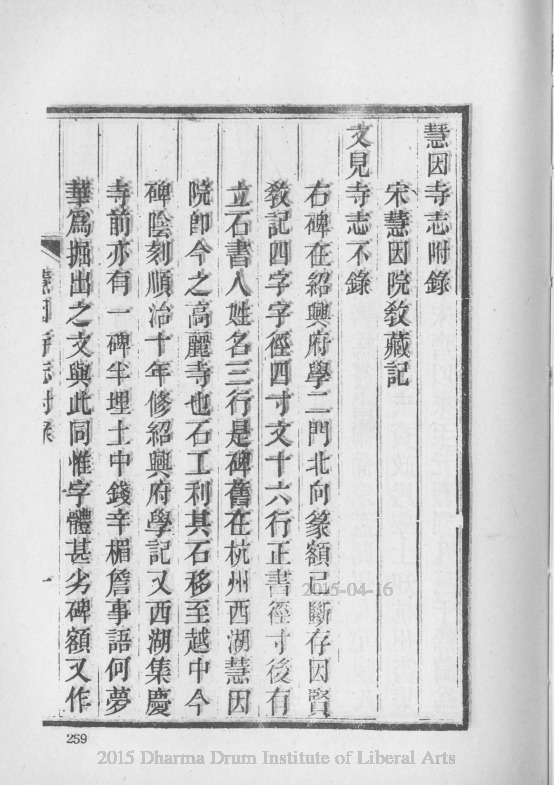 慧因寺志附錄
宋慧因院教藏記
文見寺志不錄
右碑在紹興府學二門北向篆額已斷存因賢
教記四字字徑四寸文十六行正書徑寸後有
立石書人姓名三行是碑舊在杭州西湖慧因
院卽今之高麗寺也石工利其石移至越中今
碑陰刻順治十年修紹興府學記又西湖集慶
寺前亦有一碑半埋土中錢辛楣詹事語何夢
華爲掘出之文與此同惟字體甚劣碑額又作
慧因寺志附錄
一
259
2015-04-16
2015 Dharma Drum Institute of Liberal Arts